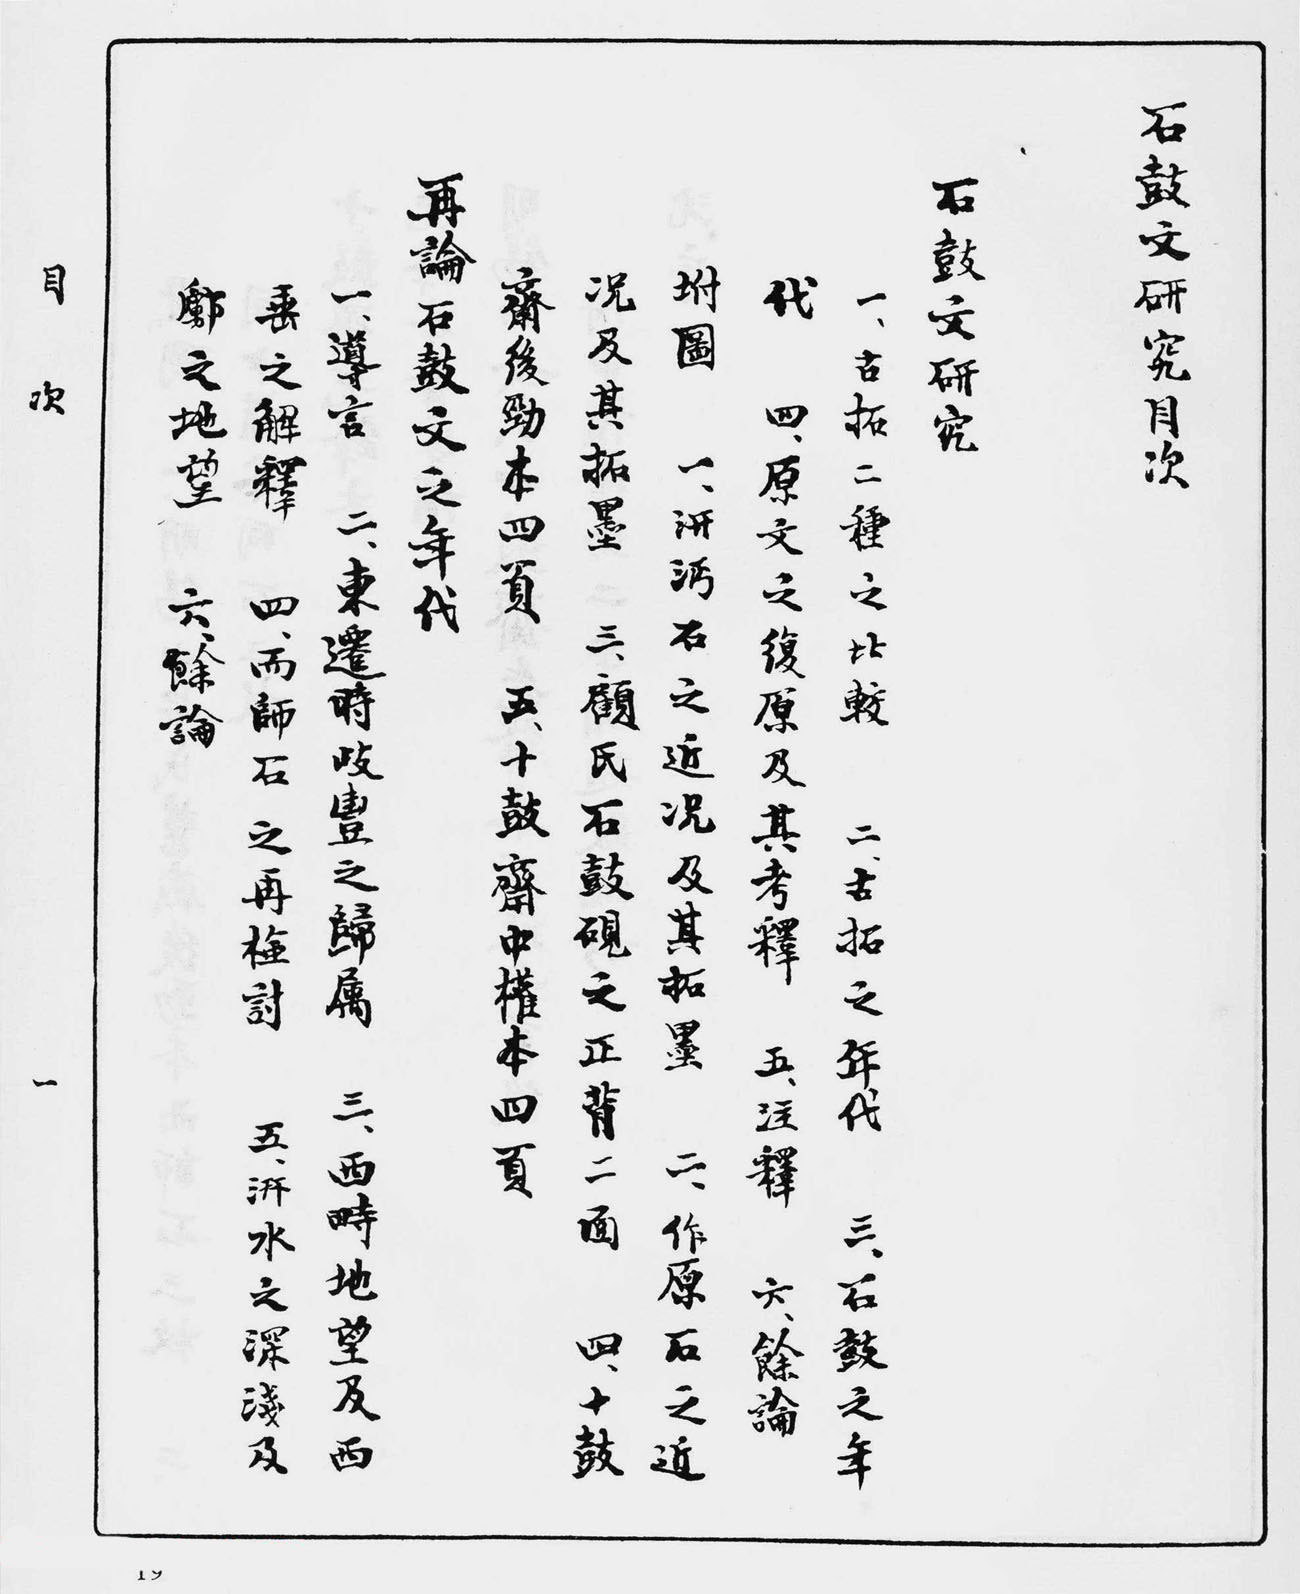 石鼓文研究目次
石鼓文研究
一、古拓二種之比較　二、古拓之年代　三、石鼓之年
代　四、原文之復原及其考釋　五、注釋　六、餘論
坿圖　一、汧沔石之近况及其拓墨　二、作原石之近
况及其拓墨　三、顧氏石鼓硯之正背二面　四、十鼓
齋後勁本四頁　五、十鼓齋中權本四頁
再論石鼓文之年代
一、導言　二、東遷時岐豐之歸属　三、西畤地望及西
垂之解釋　四、而師石之再檢討　五、汧水之深淺及
鄜之地望　六、餘論
目次　一